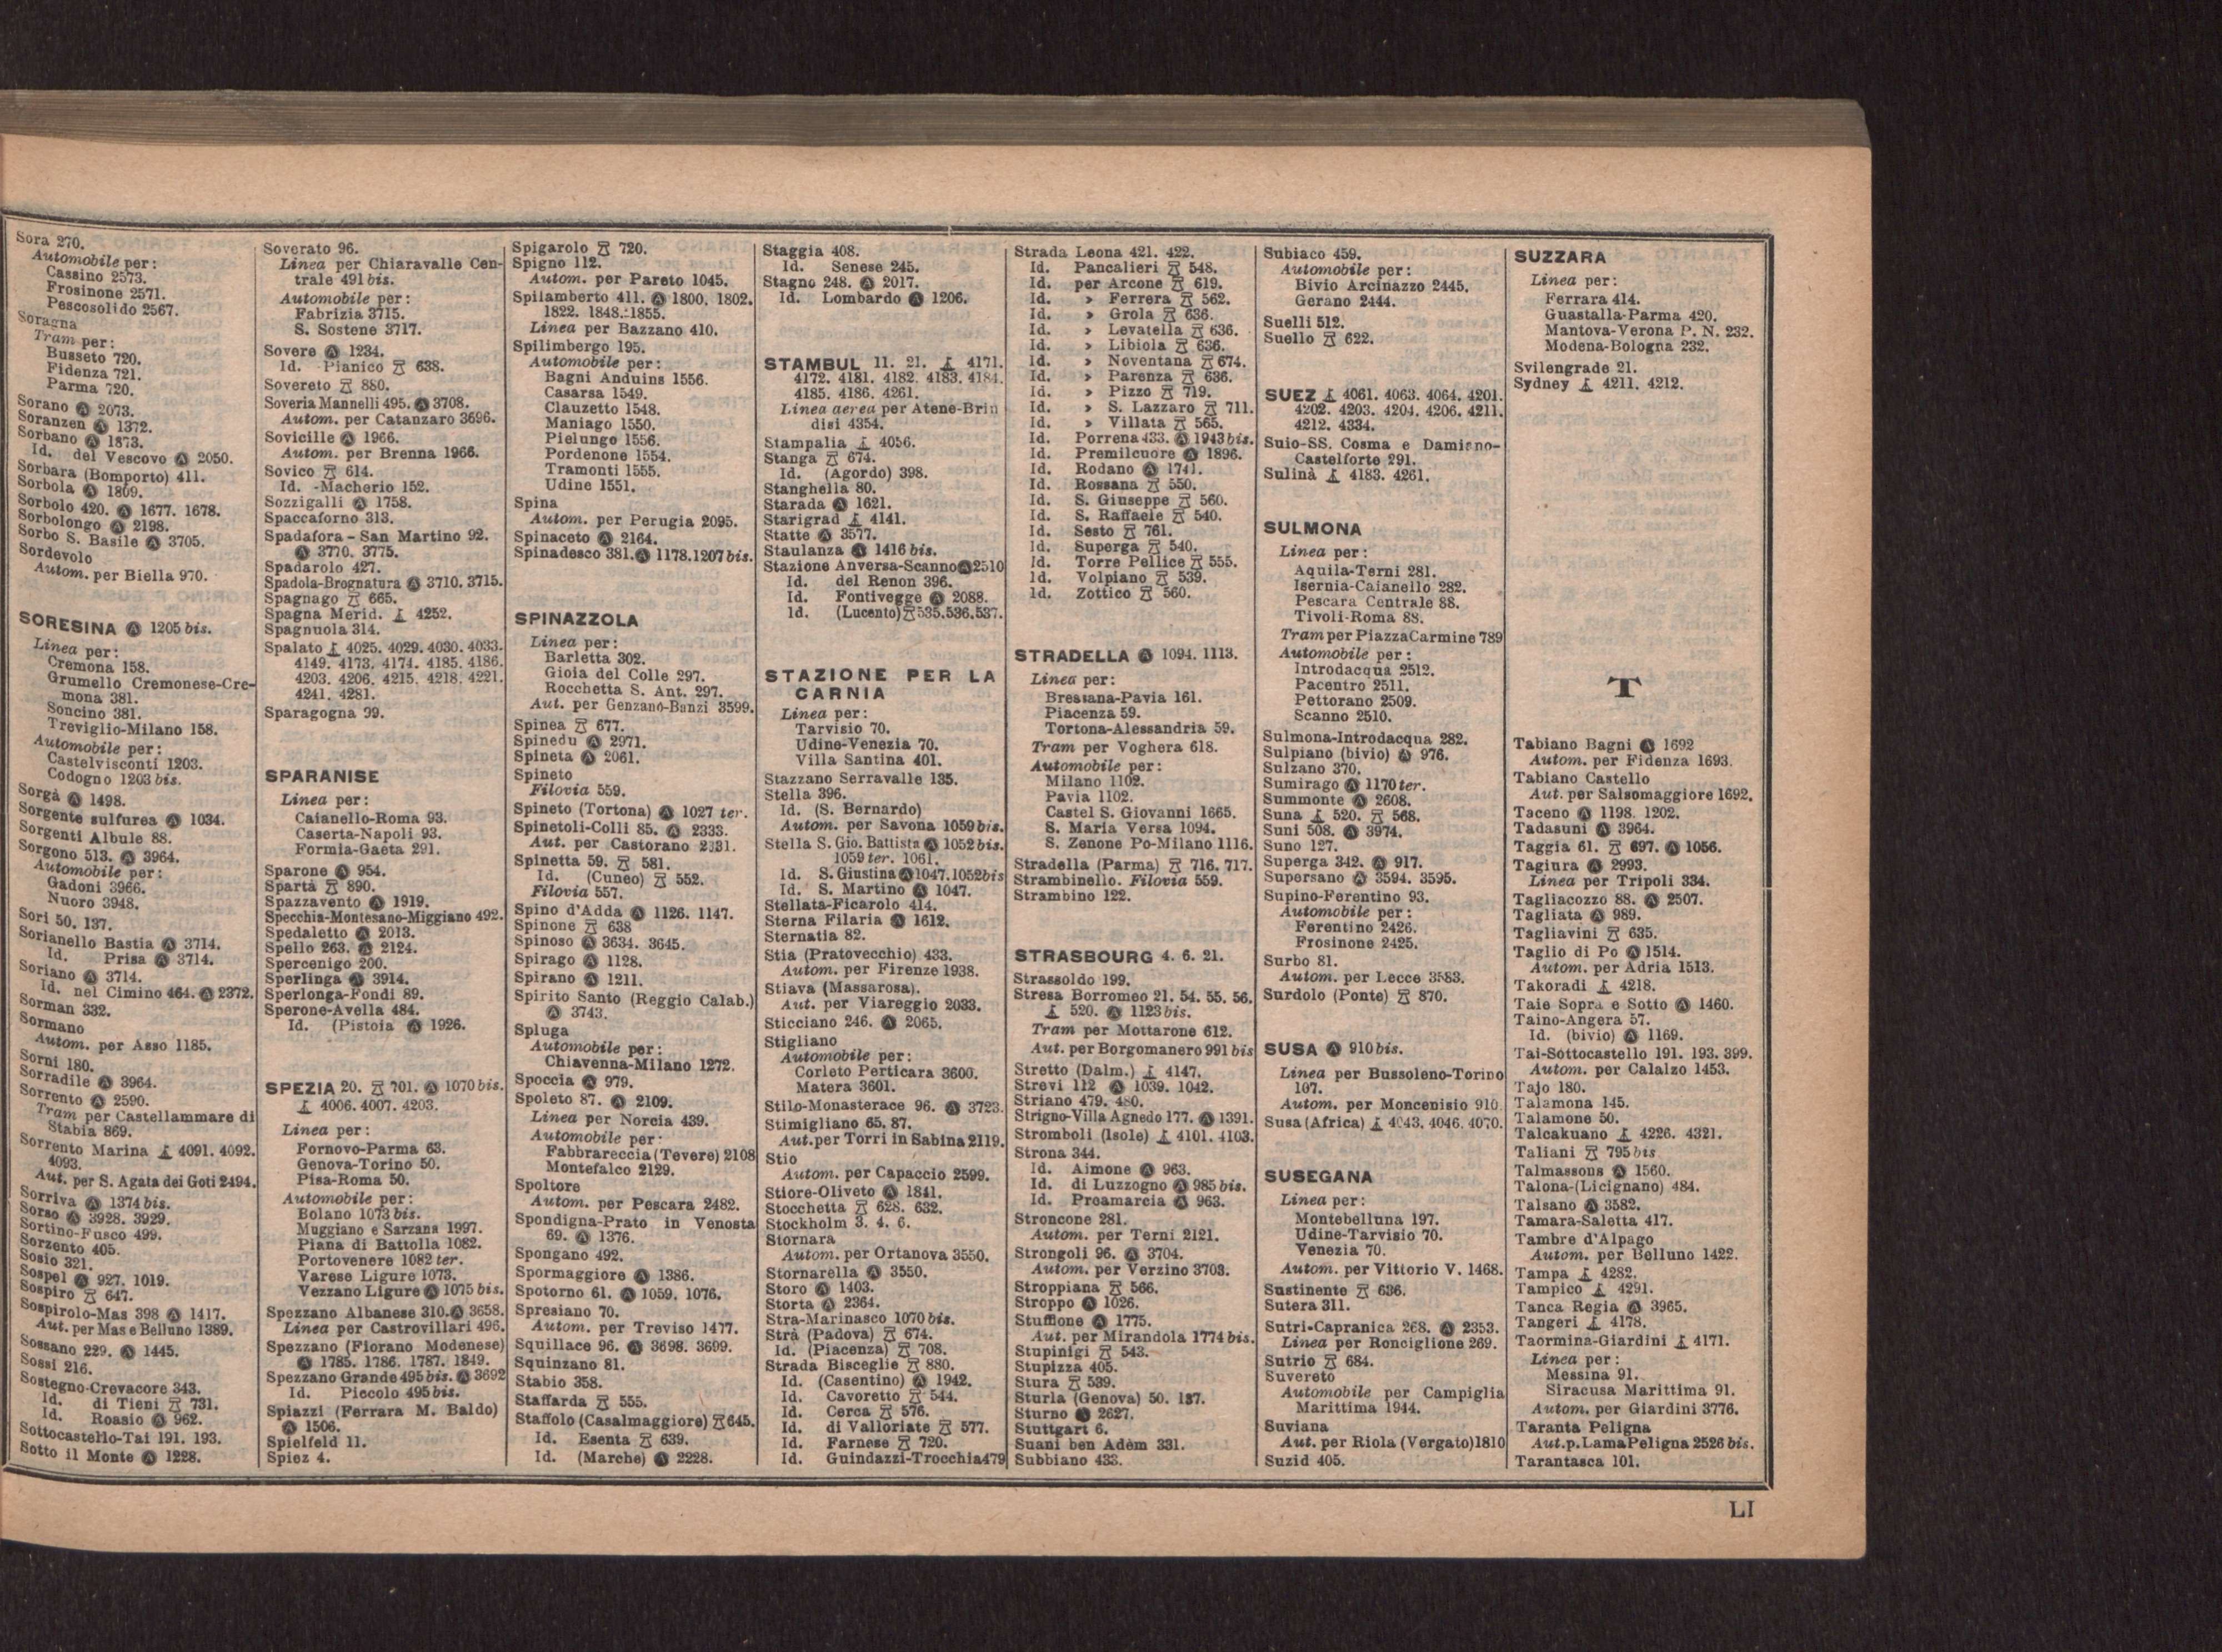 Sora 270.
Automobile per:
Cassino 2573.
Frosinone 2571.
Pescosolido 2567.
Soragna
Tram per:
Busseto 720.
Fidenza 721.
Parma 720.
Sorano Ⓐ 2073.
Soranzen Ⓐ 1372.
Sorbano Ⓐ 1873.
Id. del Vescovo Ⓐ 2050.
Sorbara (Bomporto) 411.
Sorbola Ⓐ 1809.
Sorbolo 420. Ⓐ 1677. 1678.
Sorbolongo Ⓐ 2198.
Sorbo S. Basile Ⓐ 3705.
Sordevolo
Autom. per Biella 970.
SORESINA Ⓐ 1205 bis.
Linea per:
Cremona 158.
Grumello Cremonese-Cre-
mona 381.
Soncino 381.
Treviglio-Milano 158.
Automobile per:
Castelvisconti 1203.
Codogno 1203 bis.
Sorgà Ⓐ 1498.
Sorgente sulfurea Ⓐ 1034.
Sorgenti Albule 88.
Sorgono 513. Ⓐ 3964.
Automobile per:
Gadoni 3966.
Nuoro 3948.
Sori 50. 137.
Sorianello Bastia Ⓐ 3714.
Id. Prisa Ⓐ 3714.
Soriano Ⓐ 3714.
Id. nel Cimino 464. Ⓐ 2372.
Sorman 332.
Sormano
Autom. per Asso 1185.
Sorni 180.
Sorradile Ⓐ 3964.
Sorrento Ⓐ 2590.
Tram per Castellammare di
Stabia 869.
Sorrento Marina 4091. 4092.
4093.
Aut. per S. Agata dei Goti 2494.
Sorriva Ⓐ 1374 bis.
Sorso Ⓐ 3928. 3929.
Sortino-Fusco 499.
Sorzento 405.
Sosio 321.
Sospel Ⓐ 927. 1019.
Sospiro 647.
Sospirolo-Mas 398 Ⓐ 1417.
Aut. per Mas e Belluno 1389.
Sossano 229. Ⓐ 1445.
Sossi 216.
Sostegno-Crevacore 343.
Id. di Tieni 731.
Id. Roasio Ⓐ 962.
Sottocastello-Tai 191. 193.
Sotto il Monte Ⓐ 1228.
Soverato 96.
Linea per Chiaravalle Cen-
trale 491 bis.
Automobile per:
Fabrizia 3715.
S. Sostene 3717.
Sovere Ⓐ 1234.
Id. Pianico 638.
Sovereto 880.
Soveria Mannelli 495. Ⓐ 3708.
Autom. per Catanzaro 3696.
Sovicille Ⓐ 1966.
Autom. per Brenna 1966.
Sovico 614.
Id. -Macherio 152.
Sozzigalli Ⓐ 1758.
Spaccaforno 313.
Spadafora - San Martino 92.
Ⓐ 3770. 3775.
Spadarolo 427.
Spadola-Brognatura Ⓐ 3710. 3715.
Spagnago 665.
Spagna Merid. 4252.
Spagnuola 314.
Spalato 4025. 4029. 4030. 4033.
4149. 4173. 4174. 4185. 4186.
4203. 4206. 4215. 4218. 4221.
4241. 4281.
Sparagogna 99.
SPARANISE
Linea per:
Caianello-Roma 93.
Caserta-Napoli 93.
Formia-Gaeta 291.
Sparone Ⓐ 954.
Sparta 890.
Spazzavento Ⓐ 1919.
Specchia-Montesano-Miggiano 492.
Spedaletto Ⓐ 2013.
Spello 263. Ⓐ 2124.
Spercenigo 200.
Sperlinga Ⓐ 3914.
Sperlonga-Fondi 89.
Sperone-Avella 484.
Id. (Pistoia Ⓐ 1926.
SPEZIA 20. 701. Ⓐ 1070 bis.
4006. 4007. 4203.
Linea per:
Fornovo-Parma 63.
Genova-Torino 50.
Pisa-Roma 50.
Automobile per:
Bolano 1073 bis.
Muggiano e Sarzana 1997.
Piana di Battolla 1082.
Portovenere 1082 ter.
Varese Ligure 1073.
Vezzano Ligure Ⓐ 1075 bis.
Spezzano Albanese 310. Ⓐ 3658.
Linea per Castrovillari 496.
Spezzano (Fiorano Modenese)
Ⓐ 1785. 1786. 1787. 1849.
Spezzano Grande 495 bis. Ⓐ 3692
Id. Piccolo 495 bis.
Spiazzi (Ferrara M. Baldo)
Ⓐ 1506.
Spielfeld 11.
Spiez 4.
Spigarolo 720.
Spigno 112.
Autom. per Pareto 1045.
Spilamberto 411. Ⓐ 1800. 1802.
1822. 1848. 1855.
Linea per Bazzano 410.
Spilimbergo 195.
Automobile per:
Bagni Anduins 1556.
Casarsa 1549.
Clauzetto 1548.
Maniago 1550.
Pielungo 1556.
Pordenone 1554.
Tramonti 1555.
Udine 1551.
Spina
Autom. per Perugia 2095.
Spinaceto Ⓐ 2164.
Spinadesco 381. Ⓐ 1178. 1207 bis.
SPINAZZOLA
Linea per:
Barletta 302.
Gioia del Colle 297.
Rocchetta S. Ant. 297.
Aut. per Genzano-Banzi 3599.
Spinea 677.
Spinedu Ⓐ 2971.
Spineta Ⓐ 2061.
Spineto
Filovia 559.
Spineto (Tortona) Ⓐ 1027 ter.
Spinetoli-Colli 85. Ⓐ 2333.
Aut. per Castorano 2331.
Spinetta 59. 581.
Id. (Cuneo) 552.
Filovia 557.
Spino d'Adda Ⓐ 1126. 1147.
Spinone 638
Spinoso Ⓐ 3634. 3645.
Spirago Ⓐ 1128.
Spirano Ⓐ 1211.
Spirito Santo (Reggio Calab.)
Ⓐ 3743.
Spluga
Automobile per:
Chiavenna-Milano 1272.
Spoccia Ⓐ 979.
Spoleto 87. Ⓐ 2109.
Linea per Norcia 439.
Automobile per:
Fabbrareccia (Tevere) 2108
Montefalco 2129.
Spoltore
Autom. per Pescara 2482.
Spondigna-Prato in Venosta
69. Ⓐ 1376.
Spongano 492.
Spormaggiore Ⓐ 1386.
Spotorno 61. Ⓐ 1059. 1076.
Spresiano 70.
Autom. per Treviso 1477.
Squillace 96. Ⓐ 3698. 3699.
Squinzano 81.
Stabio 358.
Staffarda 555.
Staffolo (Casalmaggiore) 645.
Id. Esenta 639.
Id. (Marche) Ⓐ 2228.
Staggia 408.
Id. Senese 245.
Stagno 248. Ⓐ 2017.
Id. Lombardo Ⓐ 1206.
STAMBUL 11. 21. 4171.
4172. 4181. 4182. 4183. 4184.
4185. 4186. 4261.
Linea aerea per Atene-Brin
disi 4354.
Stampalia 4056.
Stanga 674.
Id. (Agordo) 398.
Stanghella 80.
Starada Ⓐ 1621.
Starigrad 4141.
Statte Ⓐ 3577.
Staulanza Ⓐ 1416 bis.
Stazione Anversa-Scanno Ⓐ 2510
Id. del Renon 396.
Id. Fontivegge Ⓐ 2088.
Id. (Lucento) 535.536.537.
STAZIONE PER LA
CARNIA
Linea per:
Tarvisio 70.
Udine-Venezia 70.
Villa Santina 401.
Stazzano Serravalle 135.
Stella 396.
Id. (S. Bernardo)
Autom. per Savona 1059 bis.
Stella S. Gio. Battista Ⓐ 1052 bis.
1059 ter. 1061.
Id. S. Giustina Ⓐ 1047. 1052 bis
Id. S. Martino Ⓐ 1047.
Stellata-Ficarolo 414.
Sterna Filaria Ⓐ 1612.
Sternatia 82.
Stia (Pratovecchio) 433.
Autom. per Firenze 1938.
Stiava (Massarosa).
Aut. per Viareggio 2033.
Sticciano 246. Ⓐ 2065.
Stigliano
Automobile per:
Corleto Perticara 3600.
Matera 3601.
Stilo-Monasterace 96. Ⓐ 3723.
Stimigliano 65. 87.
Aut. per Torri in Sabina 2119.
Stio
Autom. per Capaccio 2599.
Stiore-Oliveto Ⓐ 1841.
Stocchetta 628. 632.
Stockholm 3. 4. 6.
Stornara
Autom. per Ortanova 3550.
Stornarella Ⓐ 3550.
Storo Ⓐ 1403.
Storta Ⓐ 2364.
Stra-Marinasco 1070 bis.
Strà (Padova) 674.
Id. (Piacenza) 708.
Strada Bisceglie 880.
Id. (Casentino) Ⓐ 1942.
Id. Cavoretto 544.
Id. Cerca 576.
Id. di Valloriate 577.
Id. Farnese 720.
Id. Guindazzi-Trocchia 479
Strada Leona 421. 422.
Id. Pancalieri 548.
Id. per Arcone 619.
Id. » Ferrera 562.
Id. » Grola 636.
Id. » Levatella 636.
Id. » Libiola 636.
Id. » Noventana 674.
Id. » Parenza 636.
Id. » Pizzo 719.
Id. » S. Lazzaro 711.
Id. » Villata 565.
Id. Porrena 433. Ⓐ 1943 bis.
Id. Premilcuore Ⓐ 1896.
Id. Rodano Ⓐ 1741.
Id. Rossana 550.
Id. S. Giuseppe 560.
Id. S. Raffaele 540.
Id. Sesto 761.
Id. Superga 540.
Id. Torre Pellice 555.
Id. Volpiano 539.
Id. Zottico 560.
STRADELLA Ⓐ 1094. 1113.
Linea per:
Bressana-Pavia 161.
Piacenza 59.
Tortona-Alessandria 59.
Tram per Voghera 618.
Automobile per:
Milano 1102.
Pavia 1102.
Castel S. Giovanni 1665.
S. Maria Versa 1094.
S. Zenone Po-Milano 1116.
Stradella (Parma) 716. 717.
Strambinello. Filovia 559.
Strambino 122.
STRASBOURG 4. 6. 21.
Strassoldo 199.
Stresa Borromeo 21. 54. 55. 56.
520. Ⓐ 1123 bis.
Tram per Mottarone 612.
Aut. per Borgomanero 991 bis
Stretto (Dalm.) 4147.
Strevi 112 Ⓐ 1039. 1042.
Striano 479. 480.
Strigno-Villa Agnedo 177. Ⓐ 1391.
Stromboli (Isole) 4101. 4103.
Strona 344.
Id. Aimone Ⓐ 963.
Id. di Luzzogno Ⓐ 985 bis.
Id. Preamarcia Ⓐ 963.
Stroncone 281.
Autom. per Terni 2121.
Strongoli 96. Ⓐ 3704.
Autom. per Verzino 3703.
Stroppiana 566.
Stroppo Ⓐ 1026.
Stuffione Ⓐ 1775.
Aut. per Mirandola 1774 bis.
Stupinigi 543.
Stupizza 405.
Stura 539.
Sturla (Genova) 50. 137.
Sturno Ⓐ 2627.
Stuttgart 6.
Suani ben Adèm 331.
Subbiano 433.
Subiaco 459.
Automobile per:
Bivio Arcinazzo 2445.
Gerano 2444.
Suelli 512.
Suello 622.
SUEZ 4061. 4063. 4064. 4201.
4202. 4203. 4204. 4206. 4211.
4212. 4334.
Suio-SS. Cosma e Damiano-
Castelforte 291.
Sulinà 4183. 4261.
SULMONA
Linea per:
Aquila-Terni 281.
Isernia-Caianello 282.
Pescara Centrale 88.
Tivoli-Roma 88.
Tram per Piazza Carmine 789
Automobile per:
Introdacqua 2512.
Pacentro 2511.
Pettorano 2509.
Scanno 2510.
Sulmona-Introdacqua 282.
Sulpiano (bivio) Ⓐ 976.
Sulzano 370.
Sumirago Ⓐ 1170 ter.
Summonte Ⓐ 2608.
Suna 520. 568.
Suni 508. Ⓐ 3974.
Suno 127.
Superga 342. Ⓐ 917.
Supersano Ⓐ 3594. 3595.
Supino-Ferentino 93.
Automobile per:
Ferentino 2426.
Frosinone 2425.
Surbo 81.
Autom. per Lecce 3583.
Surdolo (Ponte) 870.
SUSA Ⓐ 910 bis.
Linea per Bussoleno-Torino
107.
Autom. per Moncenisio 910.
Susa (Africa) 4043. 4046. 4070.
SUSEGANA
Linea per:
Montebelluna 197.
Udine-Tarvisio 70.
Venezia 70.
Autom. per Vittorio V. 1468.
Sustinente 636.
Sutera 311.
Sutri-Capranica 268. Ⓐ 2353.
Linea per Ronciglione 269.
Sutrio 684.
Suvereto
Automobile per Campiglia
Marittima 1944.
Suviana
Aut. per Riola (Vergato) 1810
Suzid 405.
SUZZARA
Linea per:
Ferrara 414.
Guastalla-Parma 420.
Mantova-Verona P. N. 232.
Modena-Bologna 232.
Svilengrade 21.
Sydney 4211. 4212.
T
Tabiano Bagni Ⓐ 1692
Autom. per Fidenza 1693.
Tabiano Castello
Aut. per Salsomaggiore 1692.
Taceno Ⓐ 1198. 1202.
Tadasuni Ⓐ 3964.
Taggia 61. 697. Ⓐ 1056.
Tagiura Ⓐ 2993.
Linea per Tripoli 334.
Tagliacozzo 88. Ⓐ 2507.
Tagliata Ⓐ 989.
Tagliavini 635.
Taglio di Po Ⓐ 1514.
Autom. per Adria 1513.
Takoradi 4218.
Taie Sopra e Sotto Ⓐ 1460.
Taino-Angera 57.
Id. (bivio) Ⓐ 1169.
Tai-Sottocastello 191. 193. 399.
Autom. per Calalzo 1453.
Tajo 180.
Talamona 145.
Talamone 50.
Talcakuano 4226. 4321.
Taliani 795 bis
Talmassons Ⓐ 1560.
Talona-(Licignano) 484.
Talsano Ⓐ 3582.
Tamara-Saletta 417.
Tambre d'Alpago
Autom. per Belluno 1422.
Tampa 4282.
Tampico 4291.
Tanca Regia Ⓐ 3965.
Tangeri 4178.
Taormina-Giardini 4171.
Linea per:
Messina 91.
Siracusa Marittima 91.
Autom. per Giardini 3776.
Taranta Peligna
Aut. p. Lama Peligna 2526 bis.
Tarantasca 101.
LI